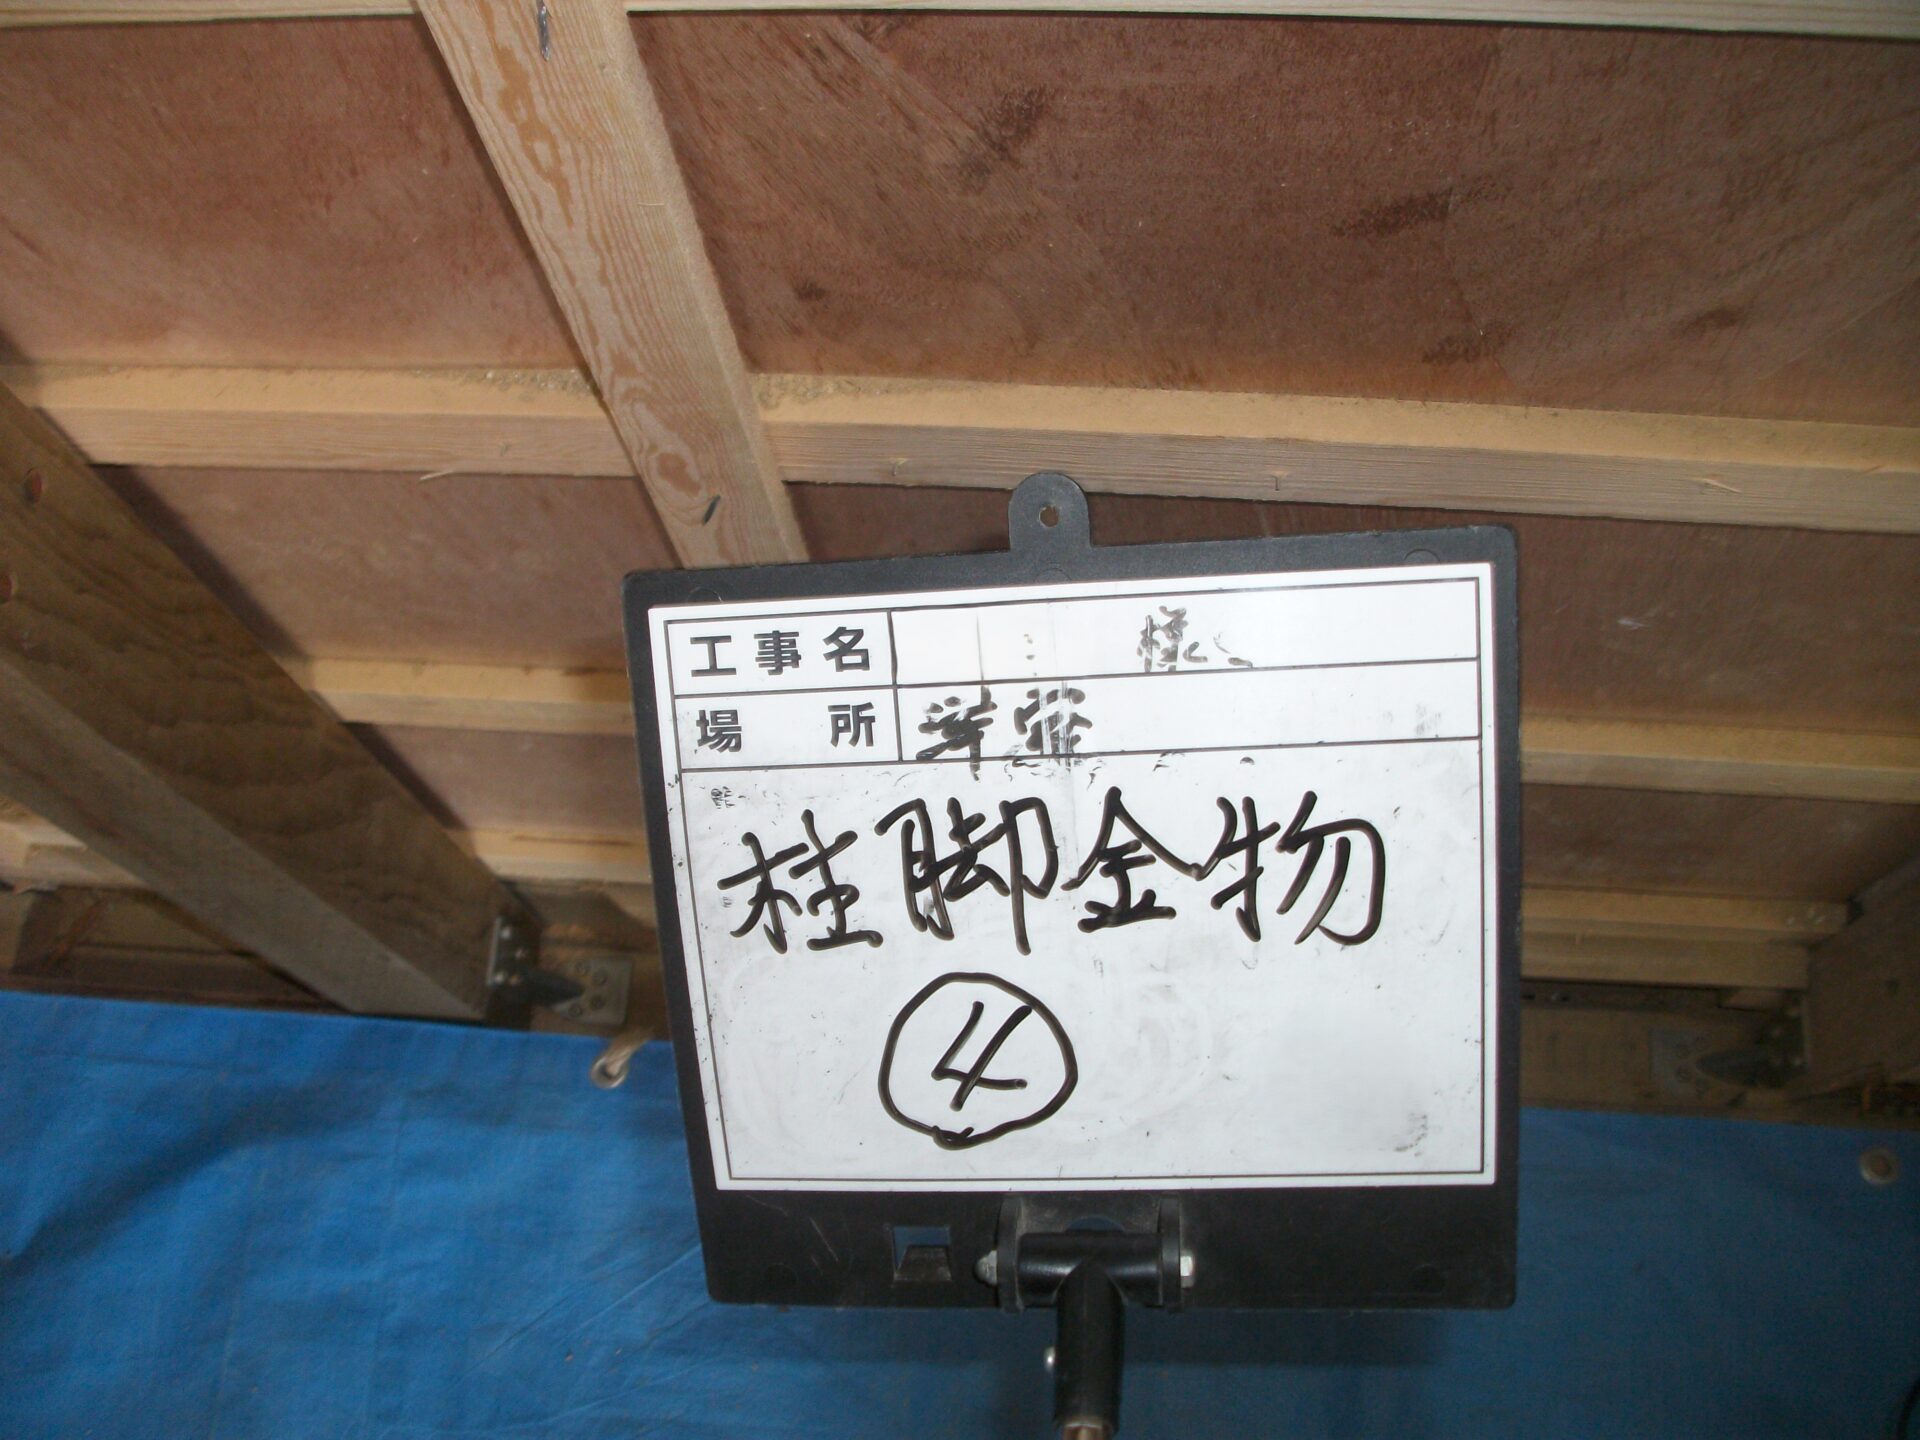 工事名 様
場所 洋室
柱脚金物
④